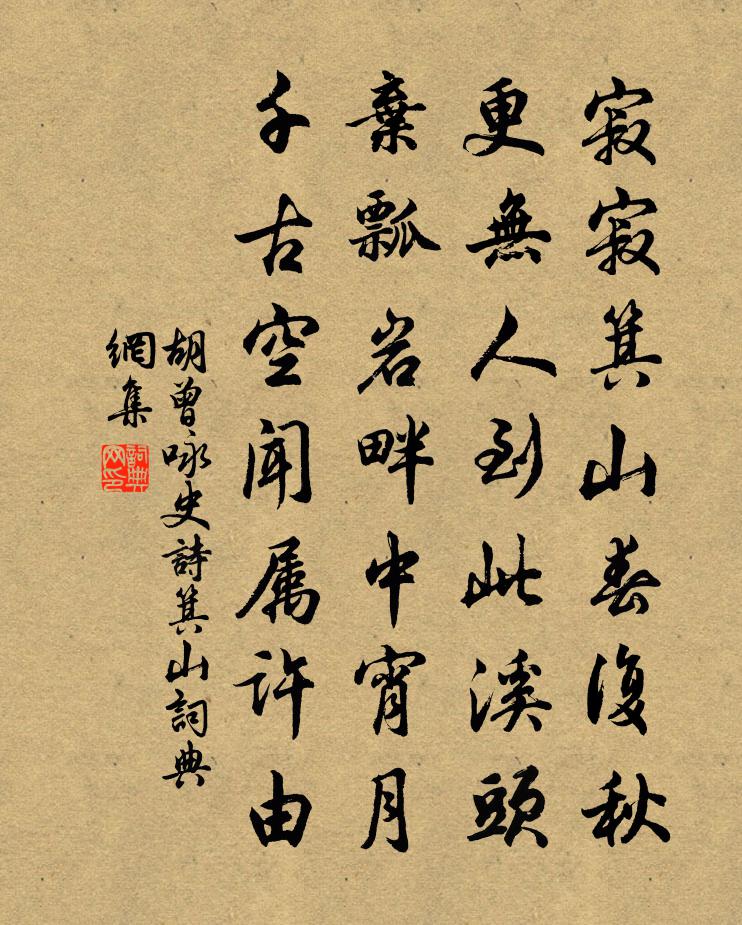 寂寂箕山春復秋
更無人到此溪頭
棄瓢岩畔中宵月
千古空聞属許由
胡曾咏史詩箕山詞典
網集
詞典
网印